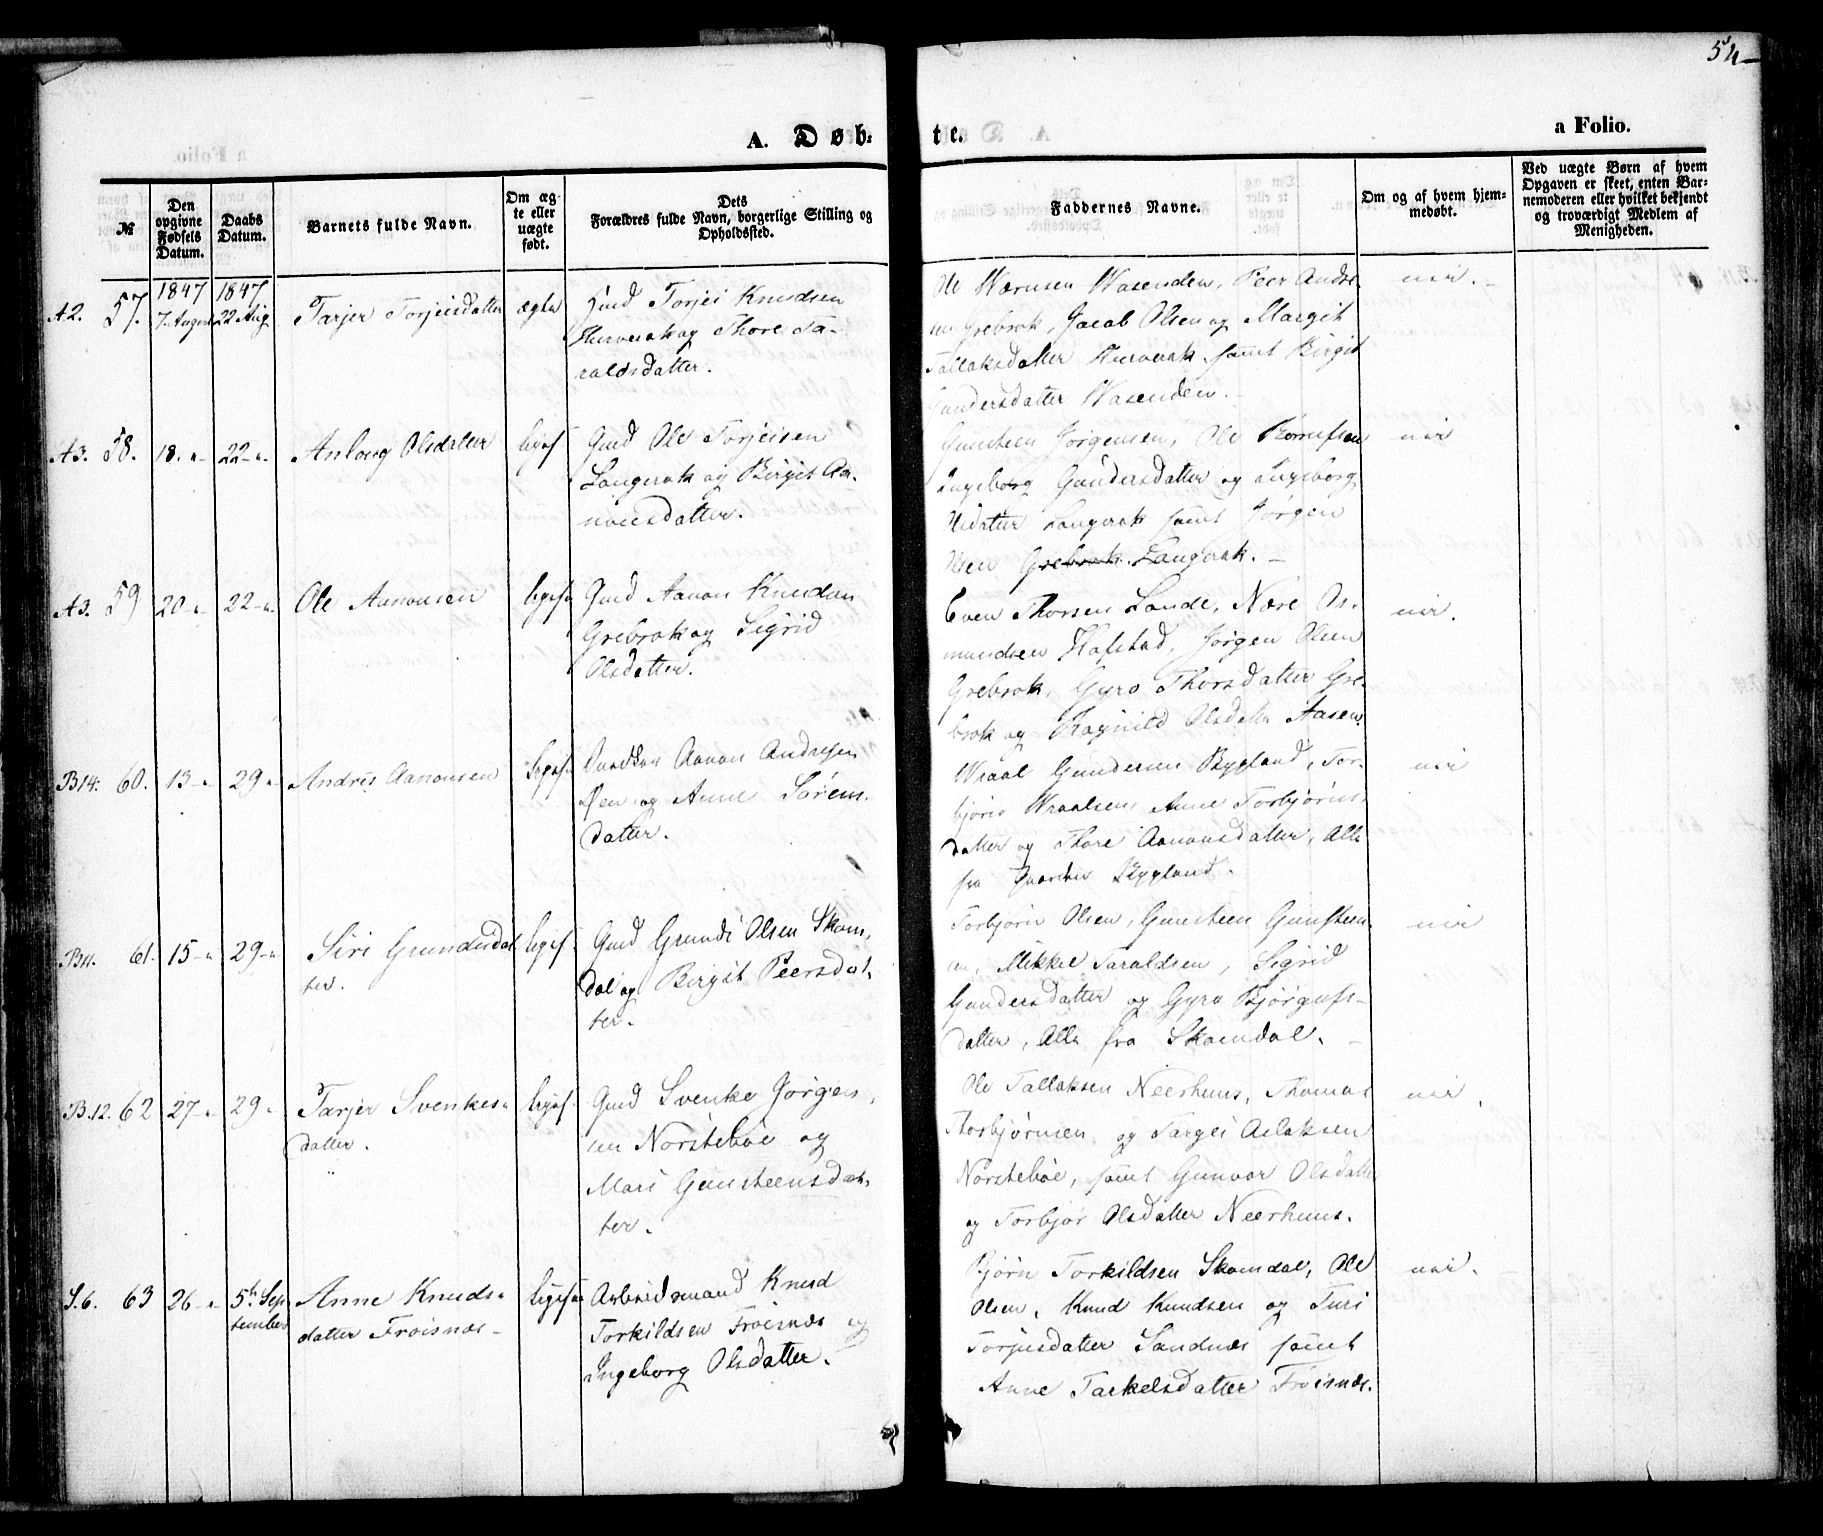 54
A. Døb-
te.
a Folio.
№
Den opgivne Fødsels Datum.
Daabs Datum.
Barnets fulde Navn.
Om ægte eller uægte født.
Dets Forældres fulde Navn, borgerlige Stilling og Opholdssted.
Faddernes Navne.
Om og af hvem hjemmedøbt.
Ved uægte Børn af hvem Opgaven er skeet, enten Barnemoderen eller hvilket bekjendt og troværdigt Medlem af Menigheden.
A2. 57. 1847 7 August 1847 22 Aug
Tarjer Torjeisdatter
ægte
Gmd Torjei Knudsen
og Thore Ta-
raldsdatter.
Ole Wærnsen Wasenden, Peer Andre-
sen Grebrok, Jacob Olsen og Margit
Tallaksdatter samt Birgit
Gundersdatter Wasenden.
nei.
A3. 58. 18. " 22 "
Anlaug Olsdatter
ligesf
Gmd Ole Torjeisen
Langerak og Birgit Aa-
nonsdatter.
Gunsteen Jørgensen, Ole
Ingeborg Gundersdatter og Ingeborg
Olsdatter Langerak samt Jørgen
Olsen Grebrok Langerak.
nei
A3. 59 20 " 22 "
Ole Aanonsen
ligesaa
Gmd Aanon Knudsen
Grebrok og Sigrid
Olsdatter.
Even Thorsen Lande, Nære Os-
mundsen Hafstad, Jørgen Olsen
Grebrok, Gyro Thorsdatter Gre-
brok og Ragnild Olsdatter Aasen.
nei.
B14. 60. 13 " 29 "
Andres Aanonsen
ligesf.
Aanon Andresen
Øen og Anne Sørens-
datter.
Wraal Gundersen Bygland, Tor-
bjørn Wraalsen, Anne Torbjørns-
datter og Thore Aanonsdatter, Alle
fra Gaarden Bygland.
nei
B11. 61. 15 " 29 "
Siri Grundesdat-
ter.
ligesf.
Gmd Grunde Olsen Skam-
dal og Birgit Peersdat-
ter.
Torbjørn Olsen, Gunsteen Gunsteen-
sen, Mikkel Taraldsen, Sigrid
Gundersdatter og Gyro Bjørgufs-
datter, Alle fra Skamdal.
nei
B.12. 62 27 " 29 "
Tarjer Svenkes-
datter.
ligesf.
Gmd Svenke Jørgen-
sen Norstebøe og
Mari Gunsteensdat-
ter.
Ole Tallaksen Neerhuus, Thomas
Thorbjørnsen og Targei Aslaksen
Norstebøe, samt Gunvor Olsdatter
og Torbjør Olsdatter Neerhuus.
nei.
S.6. 63 26 " 5te Sep-
tember
Anne Knuds-
datter Frøisnæs
ligesaa
Arbeidsmand Knud
Torkildsen Frøisnæs og
Ingeborg Olsdatter.
Bjørn Torkildsen Skamdal, Ole
Olsen, Knud Knudsen og Turi
Torjusdatter Sandnæs samt
Anne Tarkelsdatter Frøisnæs.
nei.